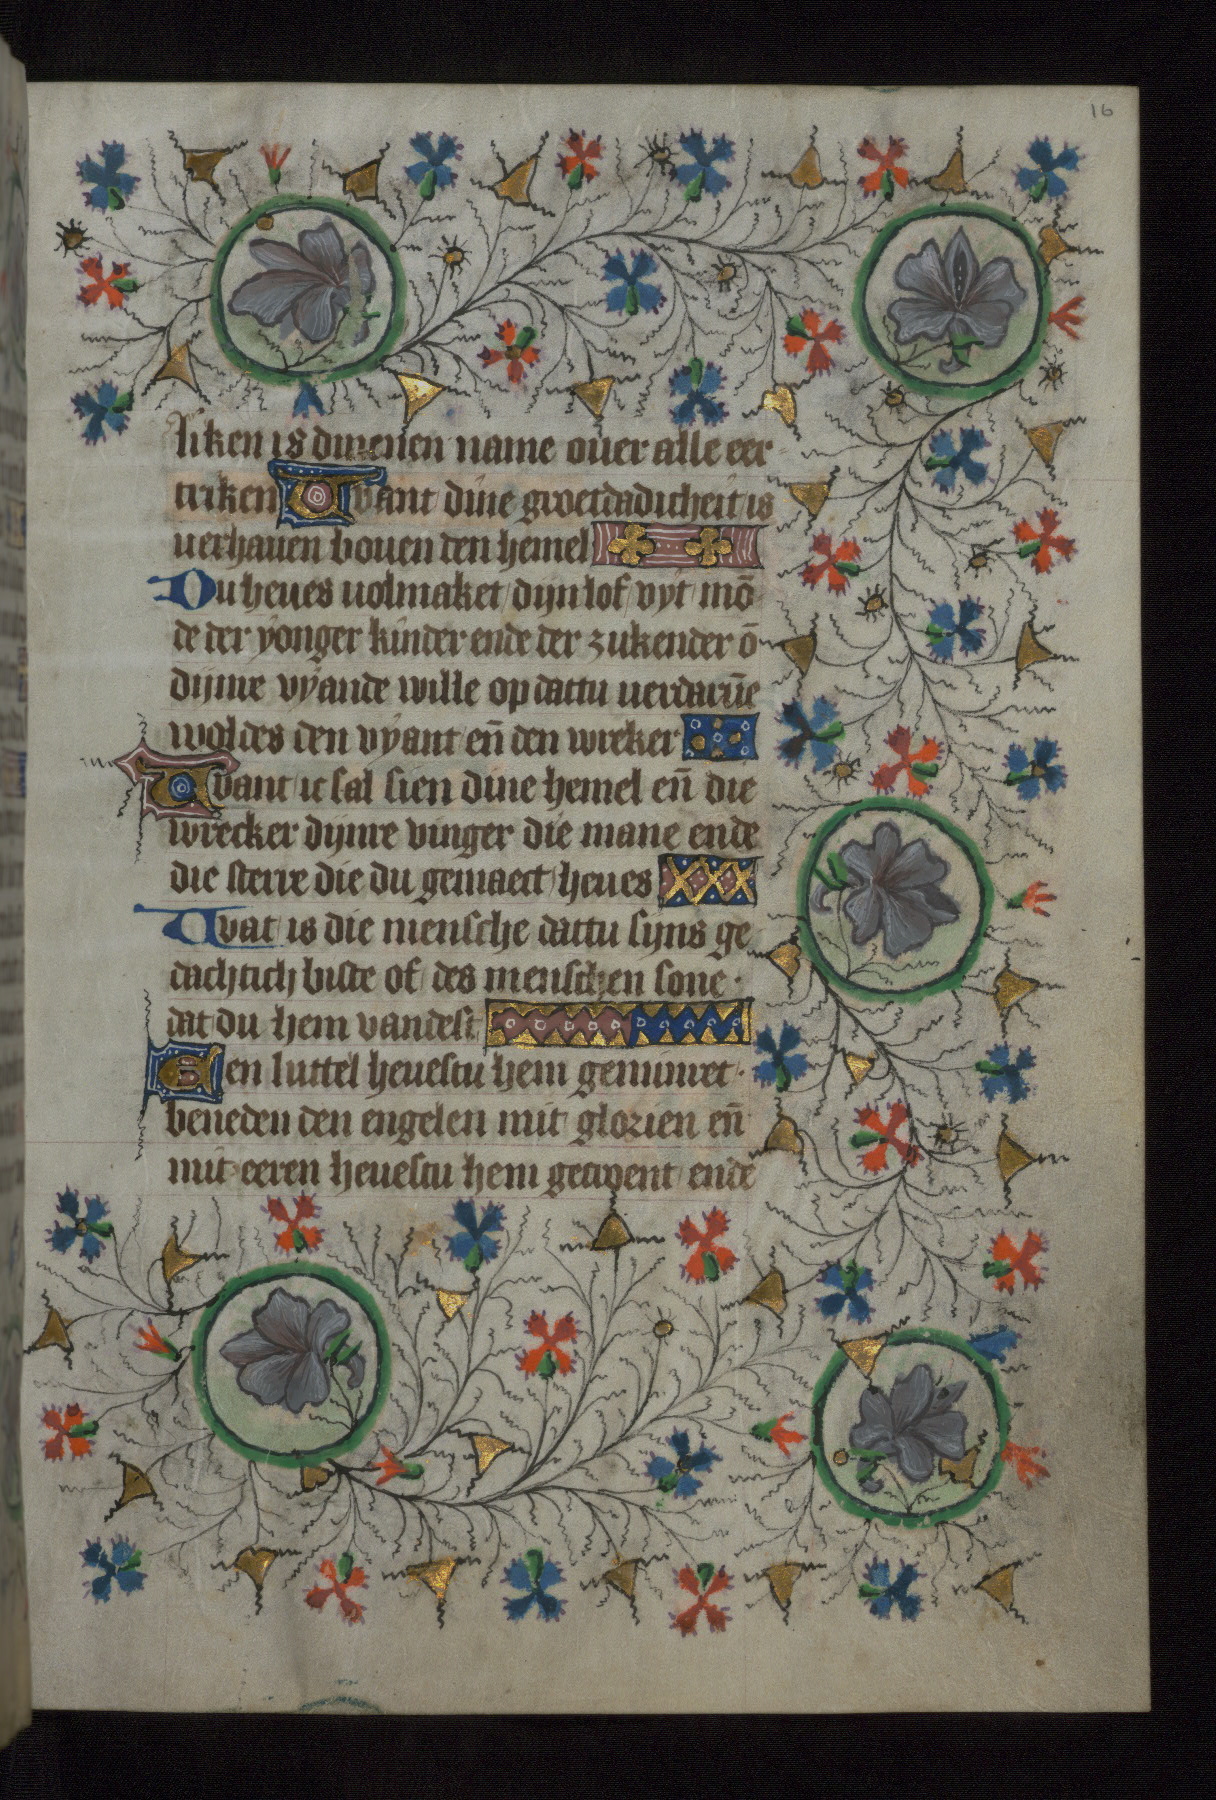 16
liken is dinenen name ouer alle eer
triken want dine groetdadicheit is
uerhauen bouen den hemel
Du heues uolmaket dijn lof vyt mō
de der yonger kinder ende der zukender ō
dijnre vyande wille op dattu uerdarūe
woldes den vyant en̄ den wreker
Want ic sal sien dine hemel en̄ die
wrecker dijnre vinger die mane ende
die sterre die du gemaect heues
Wat is die mensche dattu sijns ge
dachtich biste of des menschen sone
dat du hem vandest
Een luttel heuestu hem geminret
beneden den engelen mit glorien en̄
mit eeren heuestu hem gecroent ende